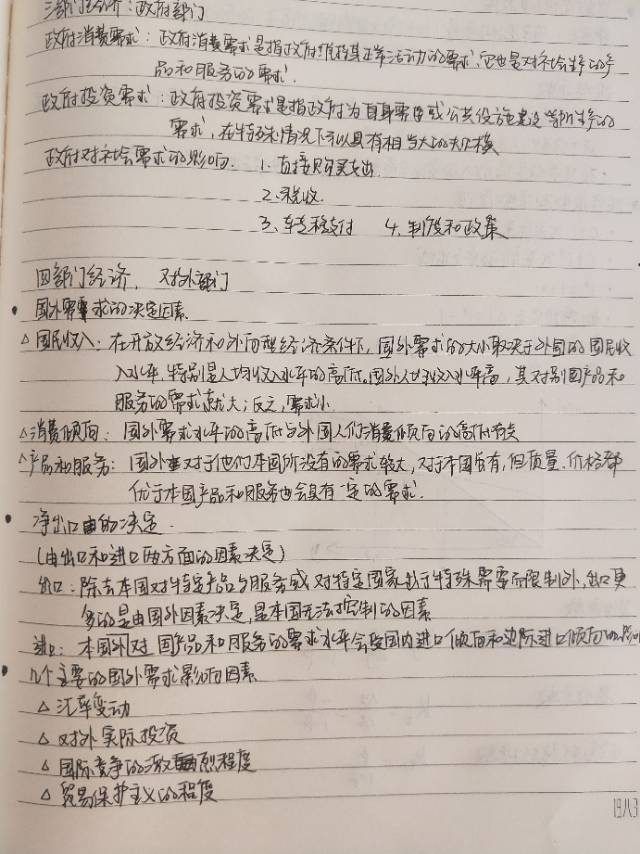 三部门经济：政府部门
政府消费需求：政府消费需求是指政府维持其正常活动的需求，它也是对社会生产的产
品和服务的需求.
政府投资需求：政府投资需求是指政府为自身需要或公共设施建设等所产生的
需求，在特殊情况下可以具有相当大的大规模
政府对社会需求的影响. 1. 直接购买支出
2. 税收.
3. 转移支付 4. 制度和政策
四部门经济，对外部门
• 国外需求的决定因素.
△国民收入：在开放经济和外向型经济条件下，国外需求的大小取决于外国的国民收
入水平，特别是人均收入水平的高低，国外人均收入水平高，其对别国产品和
服务的需求就大；反之，需求小
△消费倾向：国外需求水平的高低与外国人们消费倾向的高低有关
△产品和服务：国外对于他们本国所没有的需求较大，对于本国虽有，但质量、价格都
优于本国产品和服务也会具有一定的需求.
• 净出口的决定.
(由出口和进口两方面的因素决定)
出口：除去本国对特定产品与服务或对特定国家出于特殊需要而限制外，出口更
多的是由国外因素决定，是本国无法控制的因素
进口：本国对外国产品和服务的需求水平会受国内进口倾向和边际进口倾向的影响
• 几个主要的国外需求影响因素
△ 汇率变动
△ 对外实际投资
△ 国际竞争的激烈程度
△ 贸易保护主义的程度